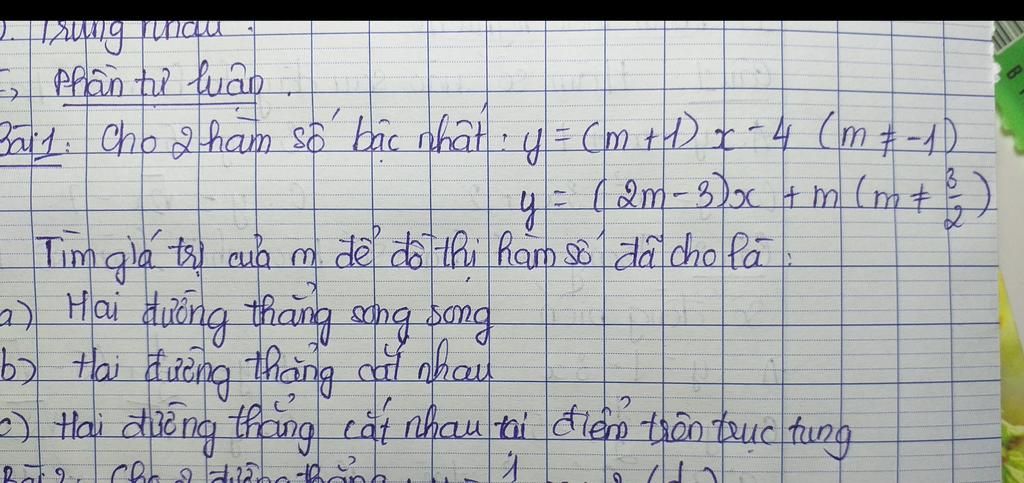 . Trùng nhau.
, Phần tự luận.
Bài 1: Cho 2 hàm số bậc nhất: y = (m+1)x - 4 (m ≠ -1)
y = (2m-3)x + m (m ≠ 3/2)
Tìm giá trị của m để đồ thị hàm số đã cho là:
a) Hai đường thẳng song song
b) Hai đường thẳng cắt nhau
c) Hai đường thẳng cắt nhau tại điểm trên trục tung
Bài 2: Cho 2 đường thẳng